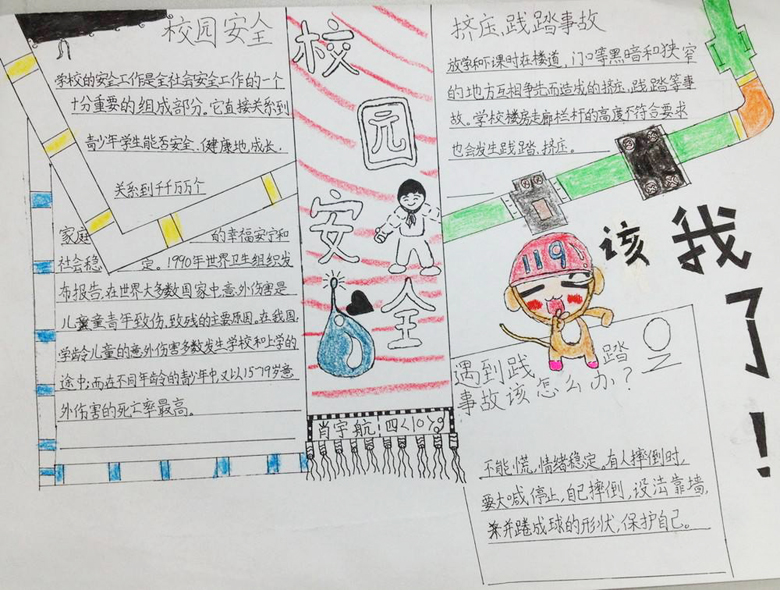 校园安全
学校的安全工作是全社会安全工作的一个
十分重要的组成部分。它直接关系到
青少年学生能否安全、健康地成长,
关系到千千万万个
家庭的幸福安宁和
社会稳定。1990年世界卫生组织发
布报告,在世界大多数国家中,意外伤害是
儿童青年致伤,致残的主要原因。在我国,
学龄儿童的意外伤害多数发生学校和上学的
途中;而在不同年龄的青少年中,又以15-19岁意
外伤害的死亡率最高。
校园安全
肖宇航 四<10>班
挤压,践踏事故
放学和下课时在楼道,门口等黑暗和狭窄
的地方互相争先而造成的挤压,践踏等事
故。学校楼房走廊栏杆的高度不符合要求
也会发生践踏、挤压。
119
该我了!
遇到践踏
事故该怎么办?
不能慌,情绪稳定,有人摔倒时,
要大喊停止,自己摔倒,设法靠墙,
并蜷成球的形状,保护自己。